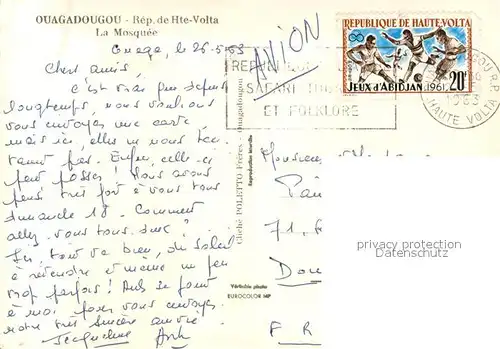 OUAGADOUGOU - Rép. de Hte-Volta
La Mosquée
Ouaga, le 26-5-63
Chers amis,
C'est vrai que depuis
longtemps, nous voulions
vous envoyer une carte
mais ici, elles ne nous ten
taient pas. Enfin, celle-ci
peut passer! Nous avons
pensé très fort à vous tous
dimanche 18. Comment
allez vous tous
Ici, tout va bien, du soleil
à revendre et même un peu
trop parfois! 
à moi pour vous envoyer
notre très sincère amitié
Jacqueline
AVION
REPUBLIQUE DE HAUTE-VOLTA
20F
JEUX d'ABIDJAN 1961
REPUBLIQUE
SAFARI
ET FOLKLORE
1963
HAUTE VOLTA
Cliché POLETTO-Frères - Ouagadougou
Reproduction interdite
Véritable photo
EUROCOLOR MP
Monsieur
71,
privacy protection
Dou
F R